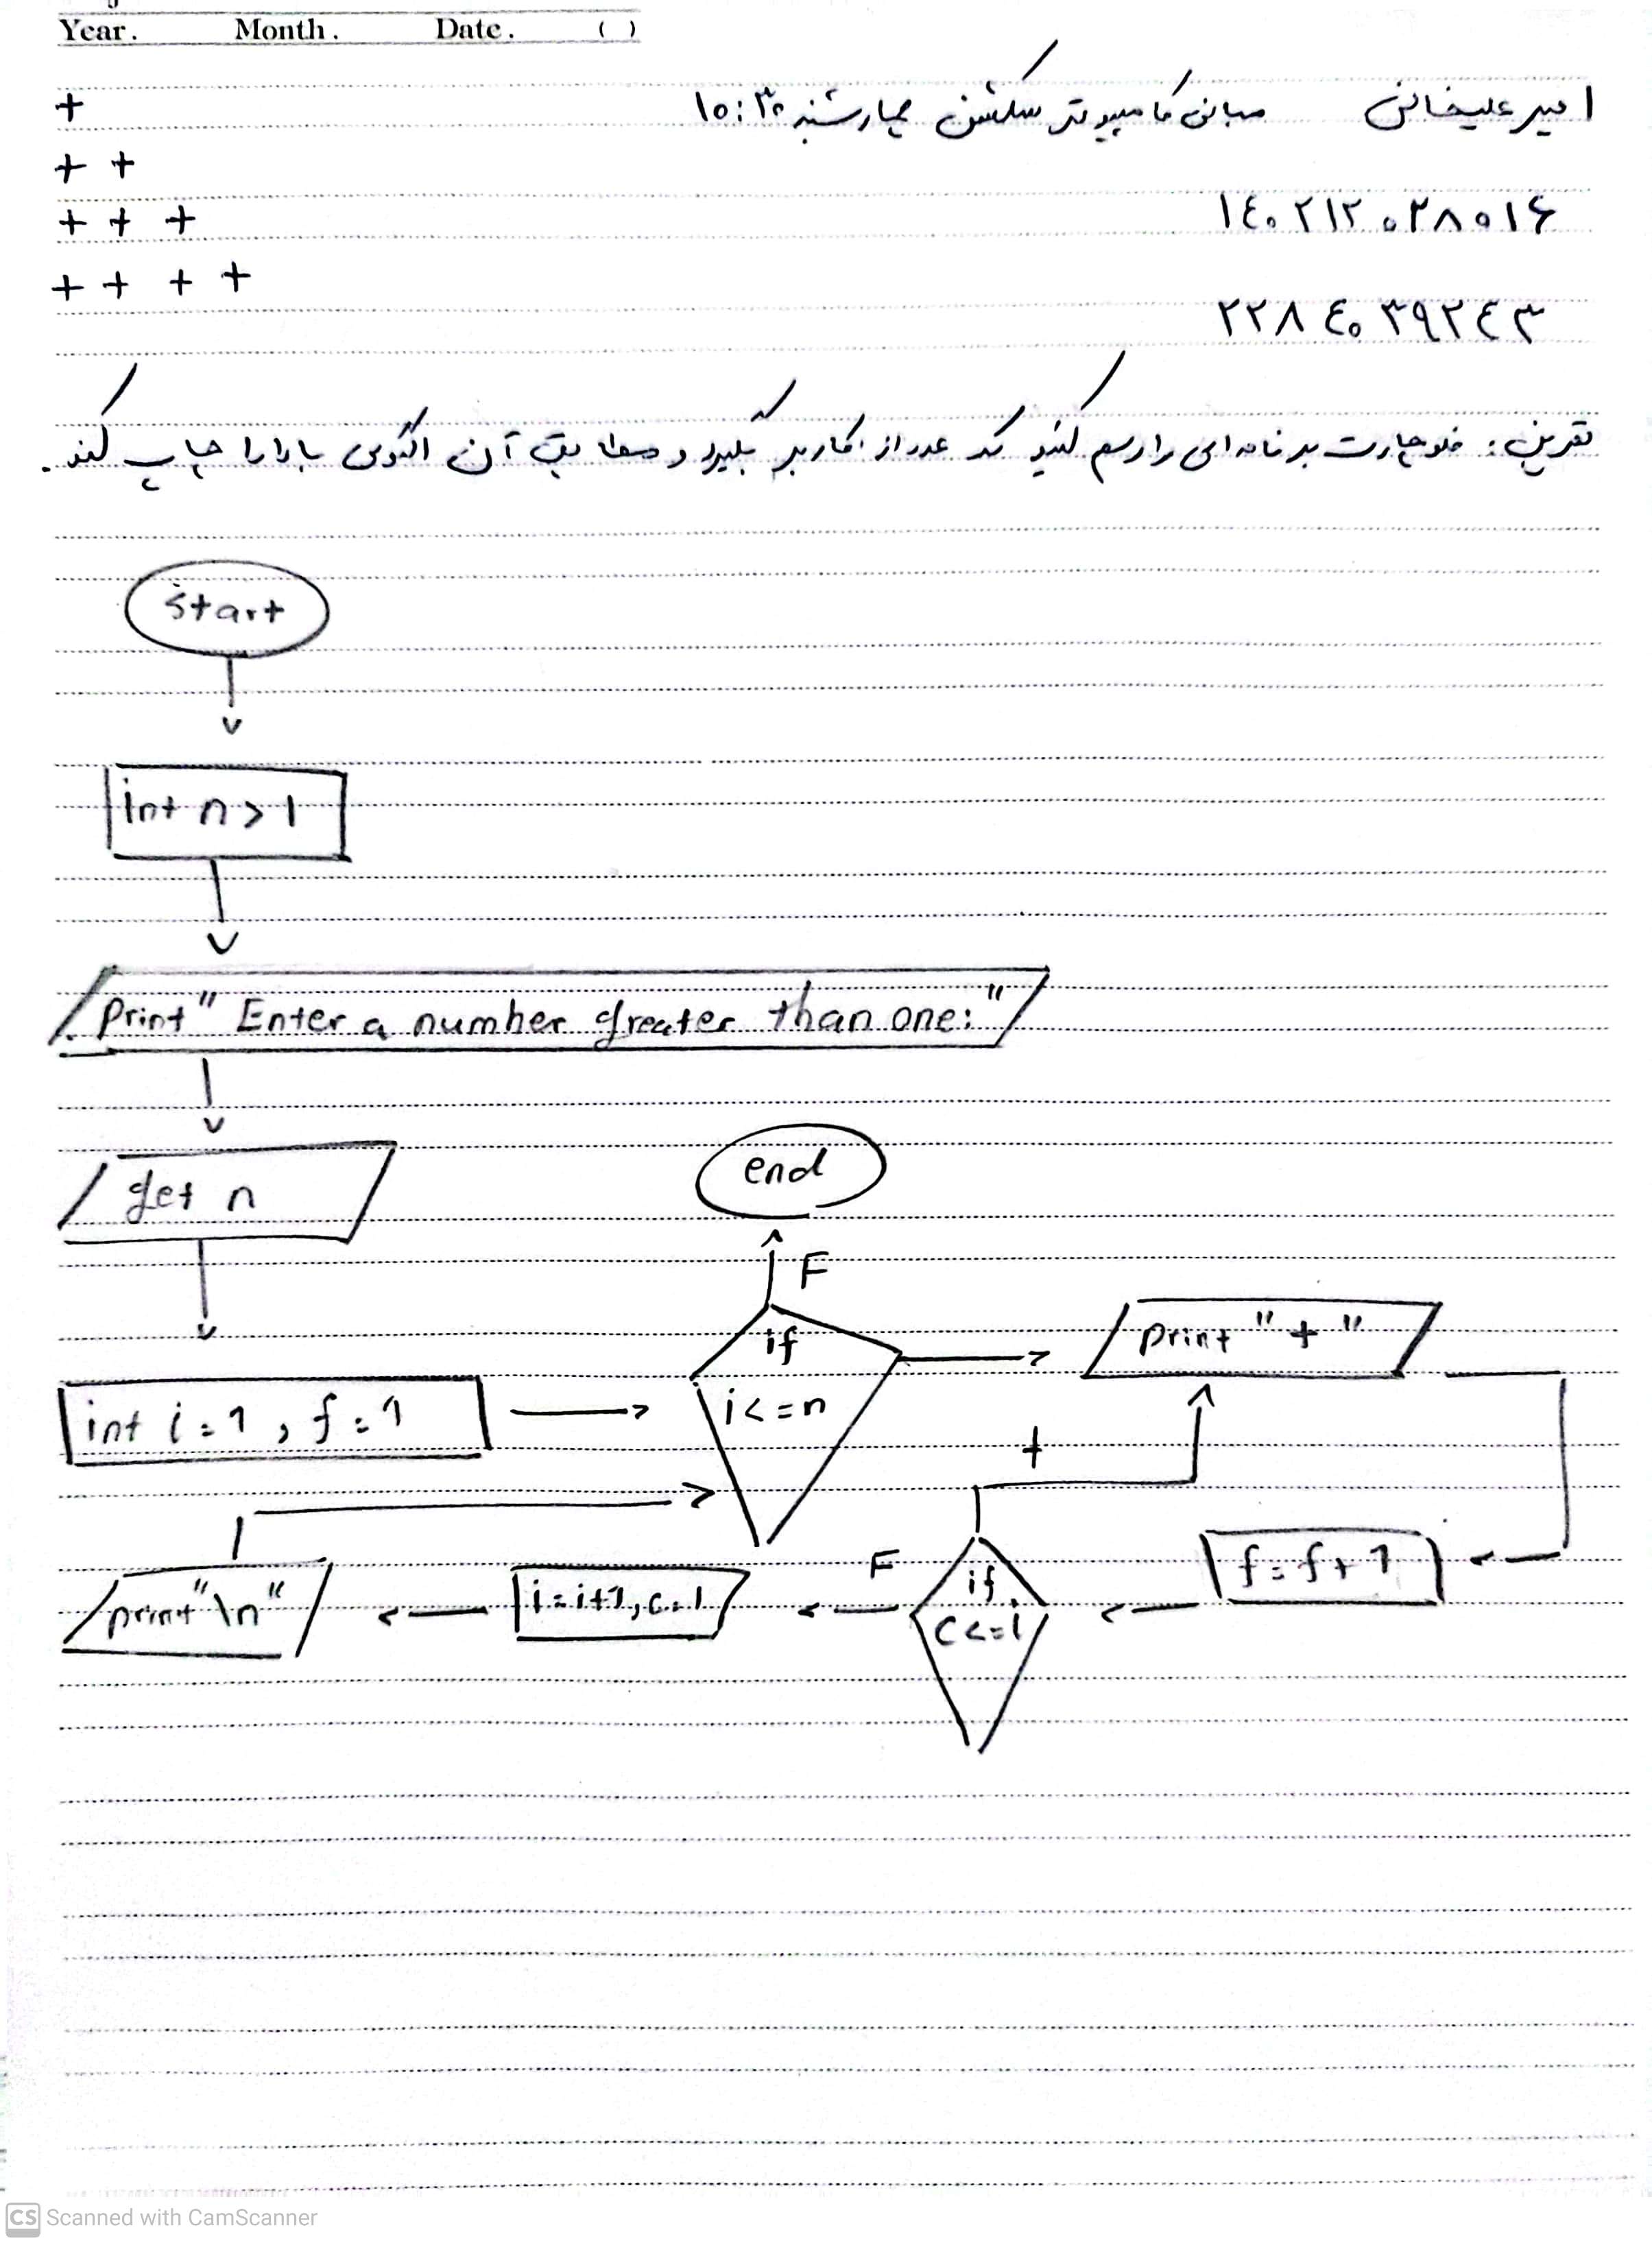 Year. Month. Date. ( )
امیر علیخانی مبانی کامپیوتر سکشن چهارشنبه ۱۰:۳۰
+
+ +
۱۴۰۲۱۲۰۲۸۰۱۶
+ + +
+ + + +
۲۲۸۴۰۳۹۲۴۳
تمرین: فلوچارت برنامه ای را رسم کنید که عدد از کاربر بگیرد و مطابق آن الگوی بالا را چاپ کند.
start
int n > 1
print "Enter a number greater than one:"
get n
end
F
if
i <= n
print "+"
int i = 1 , f = 1
+
F
f = f + 1
if
c <= i
i = i+1, c = 1
print "\n"
CS Scanned with CamScanner